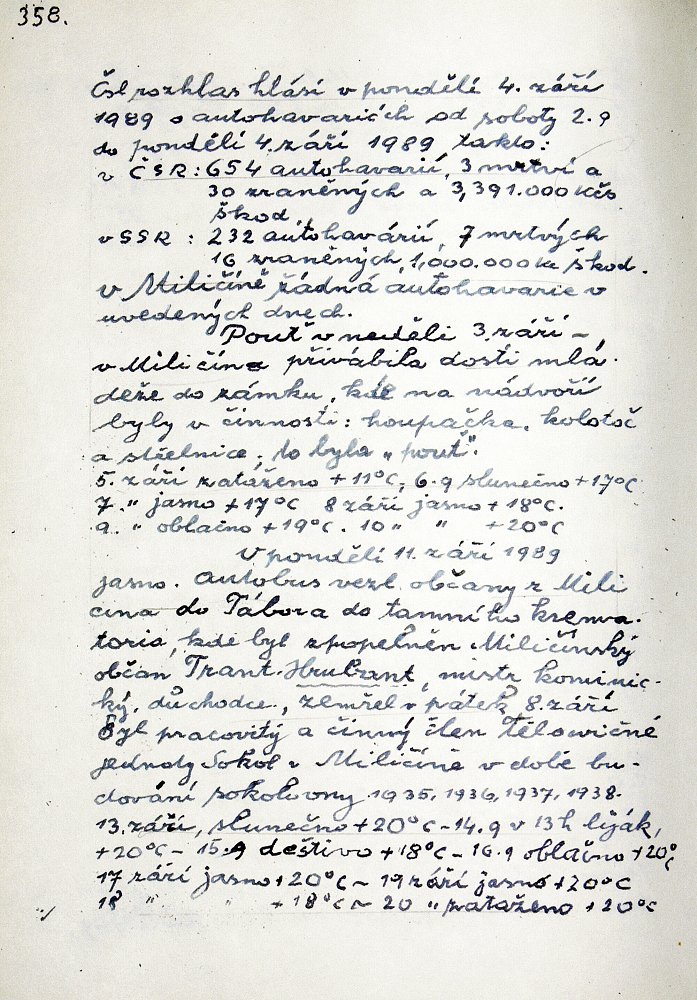 358.
Čsl rozhlas hlásí v pondělí 4. září
1989 o autohavariích od soboty 2. 9
do pondělí 4. září 1989, takto:
v ČSR: 654 autohavarií, 3 mrtví a
30 zraněných a 3,391.000 Kčs
škod.
v SSR : 232 autohavárií, 7 mrtvých
16 zraněných, 1,000.000 Kč škod.
v Miličíně žádná autohavarie v
uvedených dnech.
Pouť v neděli 3. září –
v Miličíně přivábila dosti mlá-
deže do zámku, kde na nádvoří
byly v činnosti: houpačka, kolotoč
a střelnice, to byla „pouť".
5. září zataženo +11°C, 6. 9 slunečno +17°C
7. " jasno +17°C 8 září jasno +18°C.
9. " oblačno +19°C. 10 " " +20°C
V pondělí 11. září 1989
jasno. Autobus vezl občany z Mili
čína do Tábora do tamního krema-
toria, kde byl zpopelněn Miličínský
občan Frant. Hrubant, mistr kominic-
ký, důchodce, zemřel v pátek 8. září
Byl pracovitý a činný člen Tělocvičné
jednoty Sokol v Miličíně v době bu-
dování sokolovny 1935, 1936, 1937, 1938.
13. září, slunečno +20°C – 14. 9 v 13h liják,
+20°C – 15. 9 deštivo +18°C – 16. 9 oblačno +20°C
17 září jasno +20°C – 19 září jasno +20°C
18 " " +18°C – 20 " zataženo +20°C